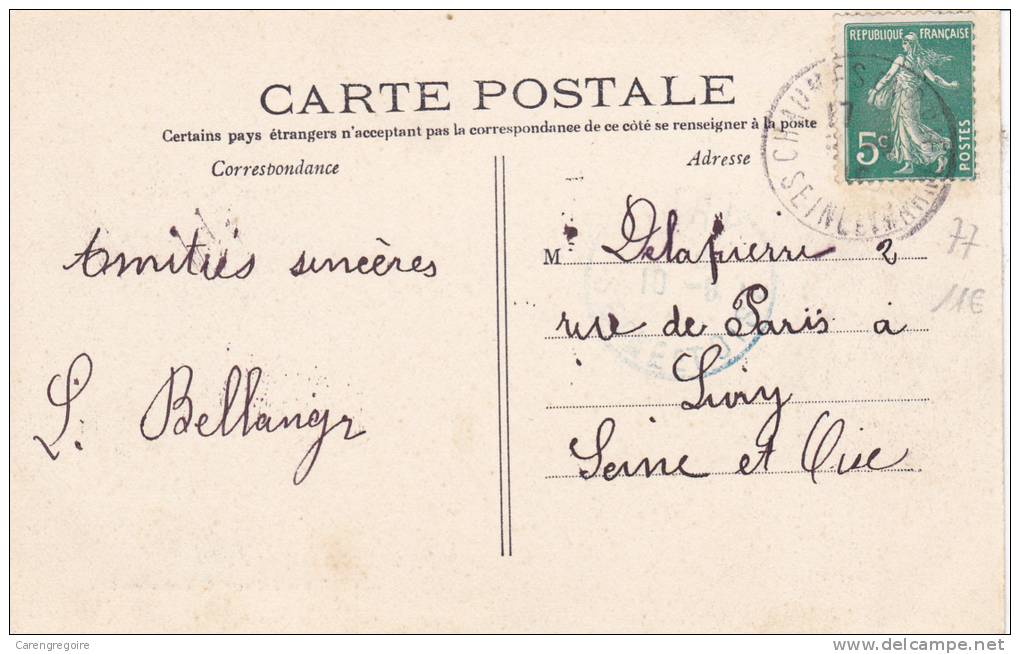 REPUBLIQUE FRANÇAISE
5c
POSTES
CARTE POSTALE
Certains pays étrangers n'acceptant pas la correspondance de ce côté se renseigner à la poste
Correspondance
Adresse
CHAUMES
SEINE
77
11€
Amitiés sincères
L. Bellanger
M Delapierre 2
rue de Paris à
Livry
Seine et Oise
Carengregoire
delcampe.net